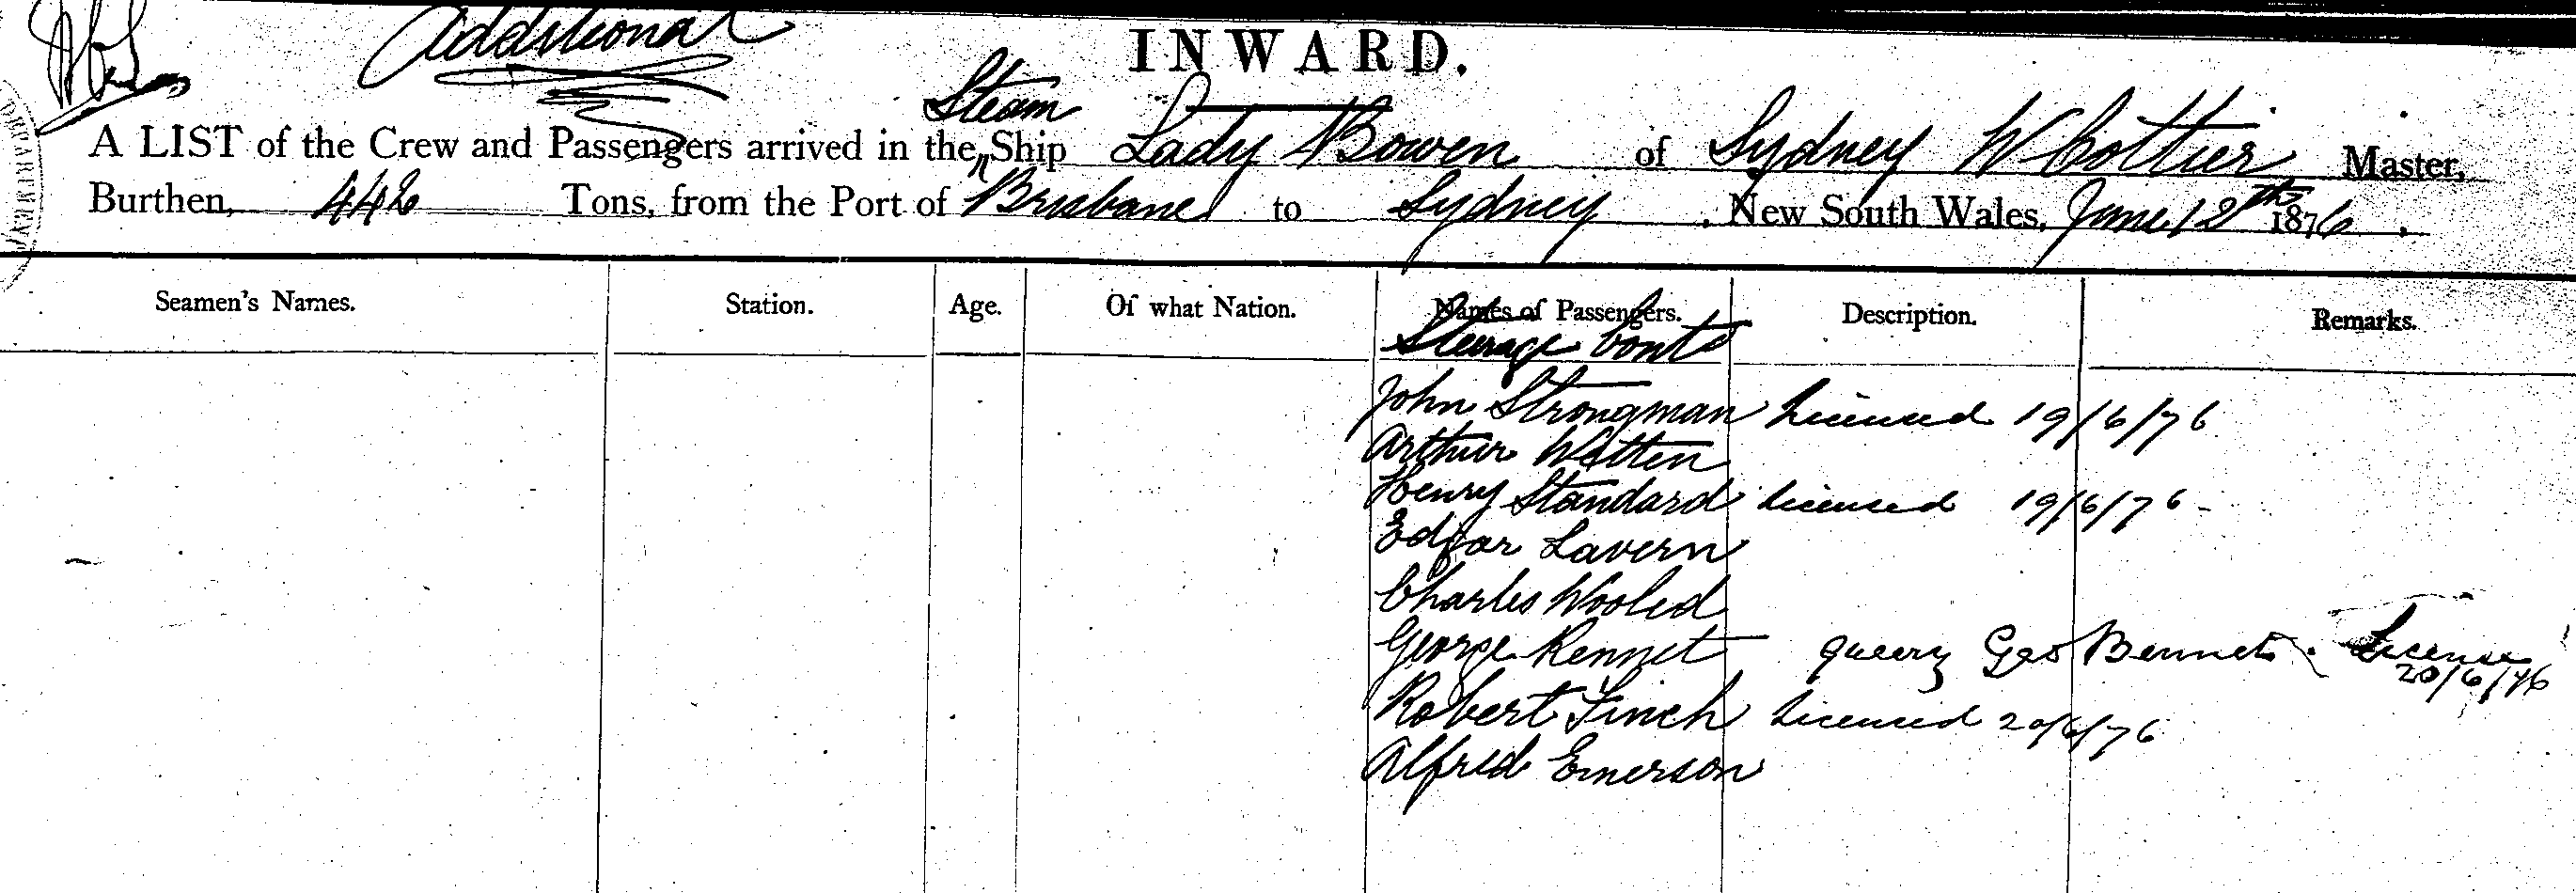 Additional
INWARD.
A LIST of the Crew and Passengers arrived in the Steam Ship Lady Bowen of Sydney W Cottier Master,
Burthen, 442 Tons, from the Port of Brisbane to Sydney, New South Wales, June 12th 1876.
Seamen's Names. Station. Age. Of what Nation. Names of Passengers. Description. Remarks.
Steerage Contd
John Strongman Licensed 19/6/76
Arthur Witten
Henry Standard Licensed 19/6/76
Edgar Lavern
Charles Wooled
George Rennet query Geo Bennet. License
20/6/76
Robert Finch Licensed 20/6/76
Alfred Emerson